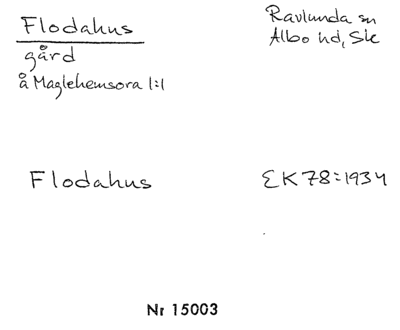 Flodahus
gård
å Maglehemsora 1:1
Ravlunda sn
Albo hd, Ske
Flodahus
EK78:1934
Nr 15003